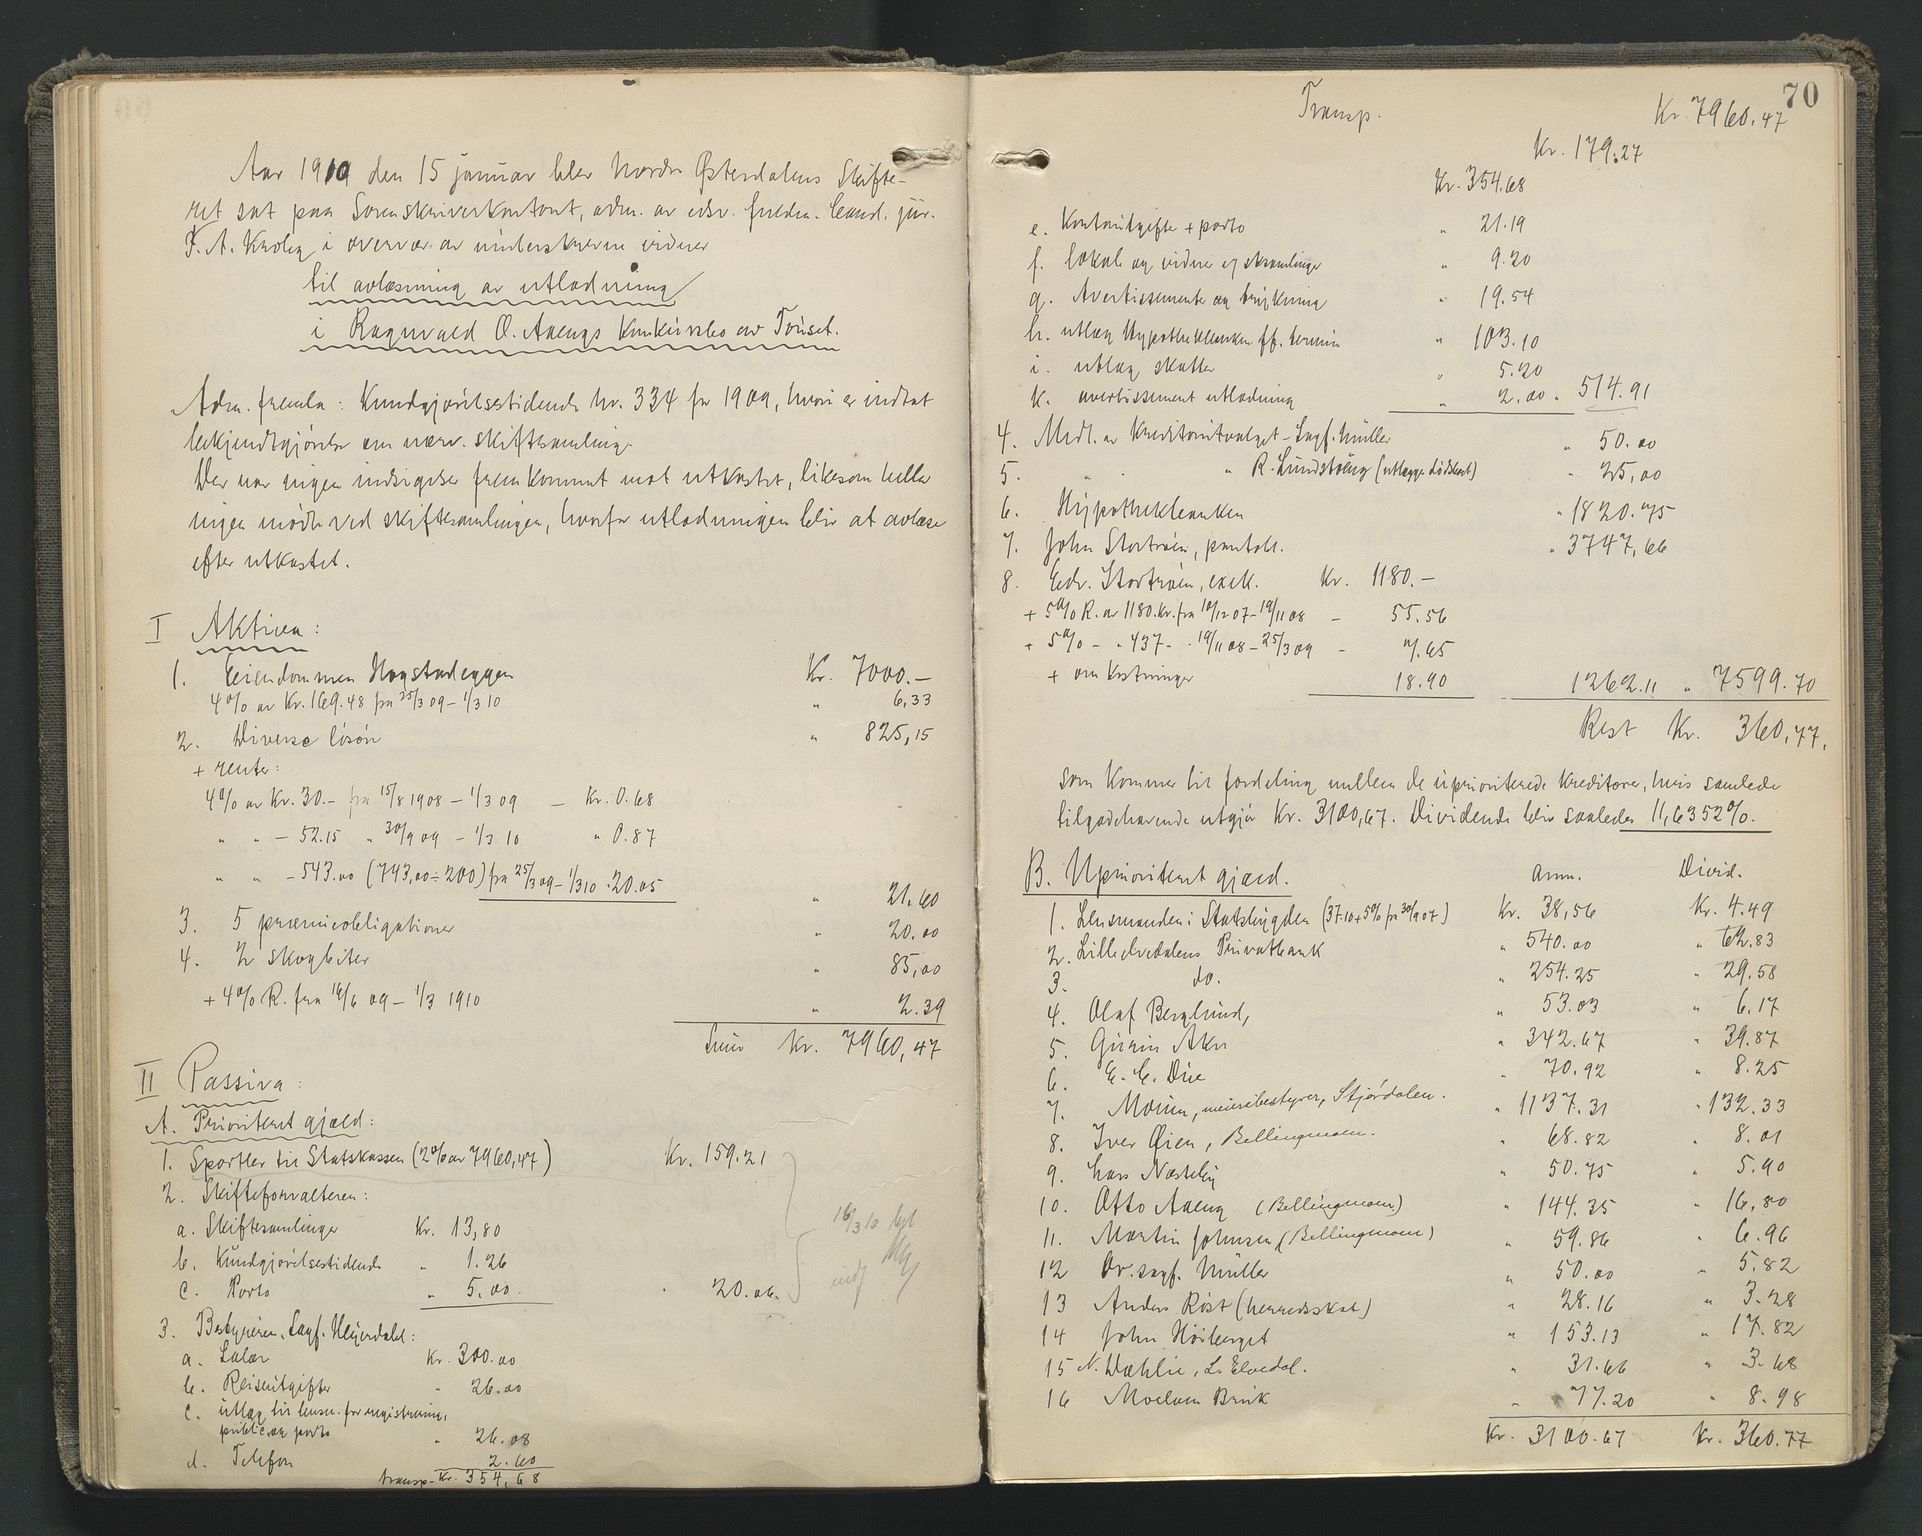 Aar 1910 den 15 januar blev Nordre Østerdalens Skifte-
ret sat paa Sorenskriverkontoret, adm. av edsv. fuldm. Cand. jur.
F. A. Krog i overvær av underskrevne vidner
til avlæsning av utlodning
i Ragnvald O. Aaengs Konkursbo av Tönset.
Adm. fremla: Kundgjörelsestidende Nr. 334 for 1909, hvori er indtat
bekjendtgjörelse om nærv. skiftesamling.
Der var ingen indsigelser fremkommet mot utkastet, likesom heller
ingen mödte ved skiftesamlingen, hvorfor utlodningen blir at avlæse
efter utkastet.
I Aktiva:
1. Eiendommen Hogstadeggen Kr. 7000.—
4% av Kr. 169.48 fra 25/3 09 – 1/3 10 " 6,33
2. Diverse lösöre " 825,15
+ renter:
4% av Kr. 30.– fra 15/8 1908 – 1/3 09 – Kr. 0.68
" " – 52.15 " 30/9 09 – 1/3 10 " 0.87
" " – 543.00 (743,00 ÷ 200) fra 25/3 09 – 1/3 10 - 20.05
" 21.60
3. 5 præmieobligationer " 20.00
4. 2 skogteiter " 85,00
+ 4% R. fra 16/6 09 – 1/3 1910 " 2.39
Sum Kr. 7960,47
II Passiva:
A. Prioritert gjæld:
1. Sportler til Statskassen (2% av 7960,47) Kr. 159.21
2. Skifteforvalteren:
a. Skiftesamlinger Kr. 13,80
b. Kundgjörelsestidende " 1.26
c. Porto " 5.00 " 20.06
16/3 10
3. Bestyreren, Sagf. Heyerdahl:
a. Salær Kr. 300.00
b. Reiseutgifter " 26.00
c. utlæg til lensm. for registrering,
public. og porto " 26.08
d. Telefon 2.60
transp. Kr. 354,68
70
Transp. Kr. 7960.47
Kr. 179.27
Kr. 354.68
e. Kontorutgifter + porto " 21.19
f. lokale og vidner v/ sksamlinger " 9.20
g. Avertissementer og trykning " 19.54
h. utlæg Hypothekbanken ff. termin " 103.10
i. utlæg skatter " 5.20
k. avertissement utlodning " 2.00 " 514.91
4. Medl. av Kreditorutvalget – Sagf. Müller " 50.00
5. " " R. Lundstöeng (utlægges dödsboet) " 25,00
6. Hypothekbanken " 1820.75
7. John Stortröen, panteh. " 3747,66
8. Edv. Stortröen, exek. Kr. 1180.—
+ 5% R. av 1180. Kr. fra 10/12 07 – 19/11 08 – 55.56
+ 5% – " 437– " 19/11 08 – 25/3 09 – 7.65
+ omkostninger 18.90 1262.11 " 7599.70
Rest Kr. 360,77,
som kommer til fordeling mellem de uprioriterede kreditorer, hvis samlede
tilgodehavende utgjör Kr. 3100,67. Dividende blir saaledes 11,6352%.
B. Uprioritert gjæld. Anm. Divid.
1. Lensmanden i Stadsbygden (37.10 + 5% fra 30/9 07) Kr. 38,56 Kr. 4.49
2. Lilleelvedalens Privatbank " 540.00 " 62.83
3. do. " 254.25 " 29.58
4. Olaf Berglund, " 53.03 " 6.17
5. Gurin Aker " 342.67 " 39.87
6. E. E. Due " 70.92 " 8.25
7. Moum, meieribestyrer, Stjördalen. " 1137.31 " 132.33
8. Iver Öien, Bellingmoen. " 68.82 " 8.01
9. Lars Næsteby " 50.75 " 5.90
10. Otto Aaeng (Bellingmoen) " 144.35 " 16,80
11. Martin Johnsen (Bellingmoen) " 59.86 " 6.96
12 Or. sagf. Müller " 50.00 " 5.82
13 Anders Röst (herredsskat) " 28.16 " 3.28
14 John Höiberget " 153.13 " 17.82
15 N. Dæhlie, L. Elvedal. " 31.66 " 3.68
16 Moelven Bruk " 77.20 " 8.98
Kr. 3100.67 Kr. 360.77